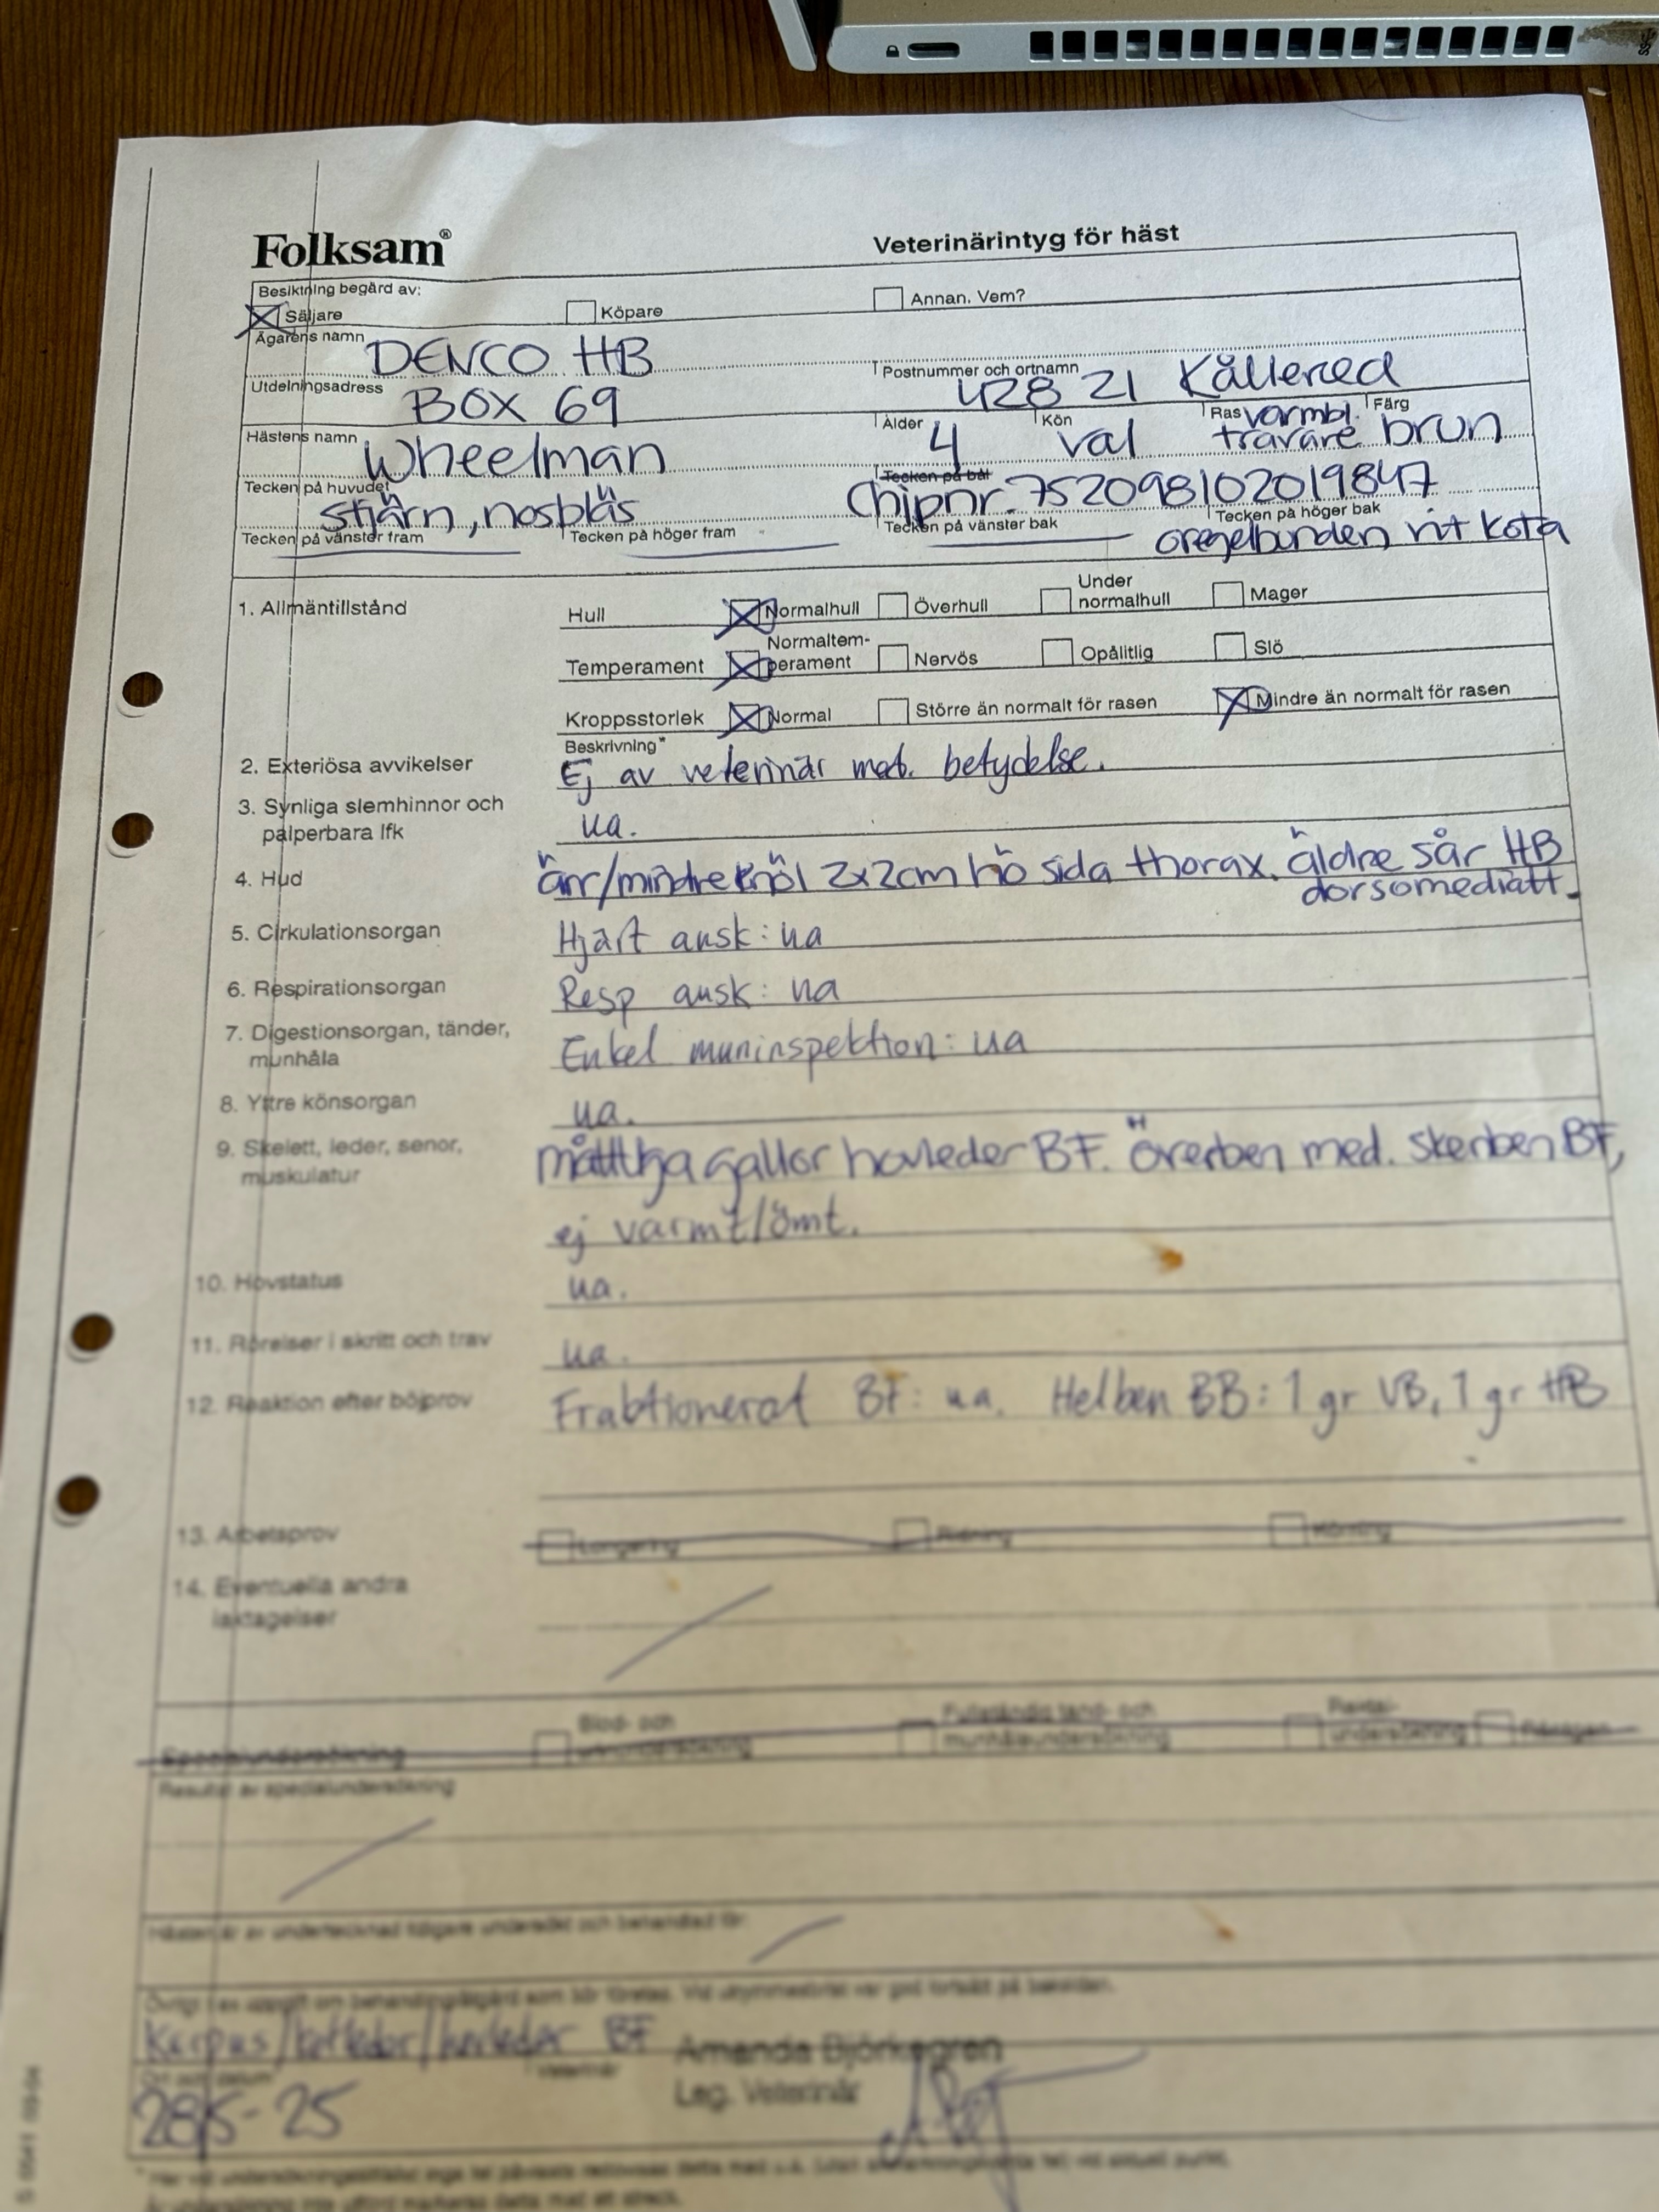 Folksam®
Veterinärintyg för häst
Besiktning begärd av:
Säljare Köpare Annan. Vem?
Ägarens namn DENCO HB
Utdelningsadress BOX 69 Postnummer och ortnamn 428 21 Kållered
Hästens namn Wheelman Ålder 4 Kön val Ras varmbl. travare Färg brun
Tecken på huvudet stjärn, nosbläs Tecken på bål Chipnr. 752098102019847
Tecken på vänster fram Tecken på höger fram Tecken på vänster bak Tecken på höger bak oregelbunden vit kota
1. Allmäntillstånd Hull Normalhull Överhull Under normalhull Mager
Temperament Normaltemperament Nervös Opålitlig Slö
Kroppsstorlek Normal Större än normalt för rasen Mindre än normalt för rasen
Beskrivning*
2. Exteriösa avvikelser Ej av veterinär med. betydelse.
3. Synliga slemhinnor och palperbara lfk ua.
4. Hud ärr/mindre knöl 2x2cm hö sida thorax. äldre sår HB
dorsomediatt.
5. Cirkulationsorgan Hjärt ausk: ua
6. Respirationsorgan Resp ausk: ua
7. Digestionsorgan, tänder, munhåla Enkel muninspektion: ua
8. Yttre könsorgan ua.
9. Skelett, leder, senor, muskulatur måttliga gallor hovleder BF. Överben med. skenben BF,
ej varmt/ömt.
10. Hovstatus ua.
11. Rörelser i skritt och trav ua.
12. Reaktion efter böjprov Fraktionerat BF: ua. Helben BB: 1 gr VB, 1 gr HB
13. Arbetsprov Longering Ridning Körning
14. Eventuella andra iakttagelser
Specialundersökning Blod- och Fullständig tand- och munhåleundersökning Rektalundersökning Röntgen
Resultat av specialundersökning
Hästen är av undertecknad tidigare undersökt och behandlad för:
Karpus/kotleder/hovleder BF
Ort och datum Veterinär
28/5-25
Amanda Björkegren
Leg. Veterinär